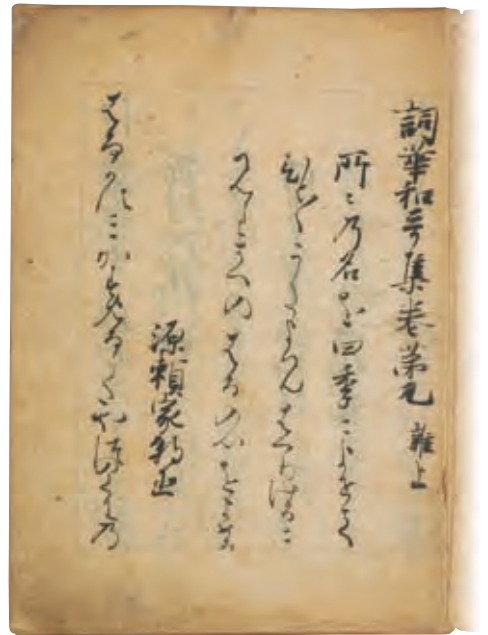 詞華和哥集巻第九 雑上
所ゝ乃名を四季によせて
ひと〳〵うたよみはへりけるに
みしまえのはるの心をよめる
源頼家朝臣
はるかすミかすめるかたや津のくに乃